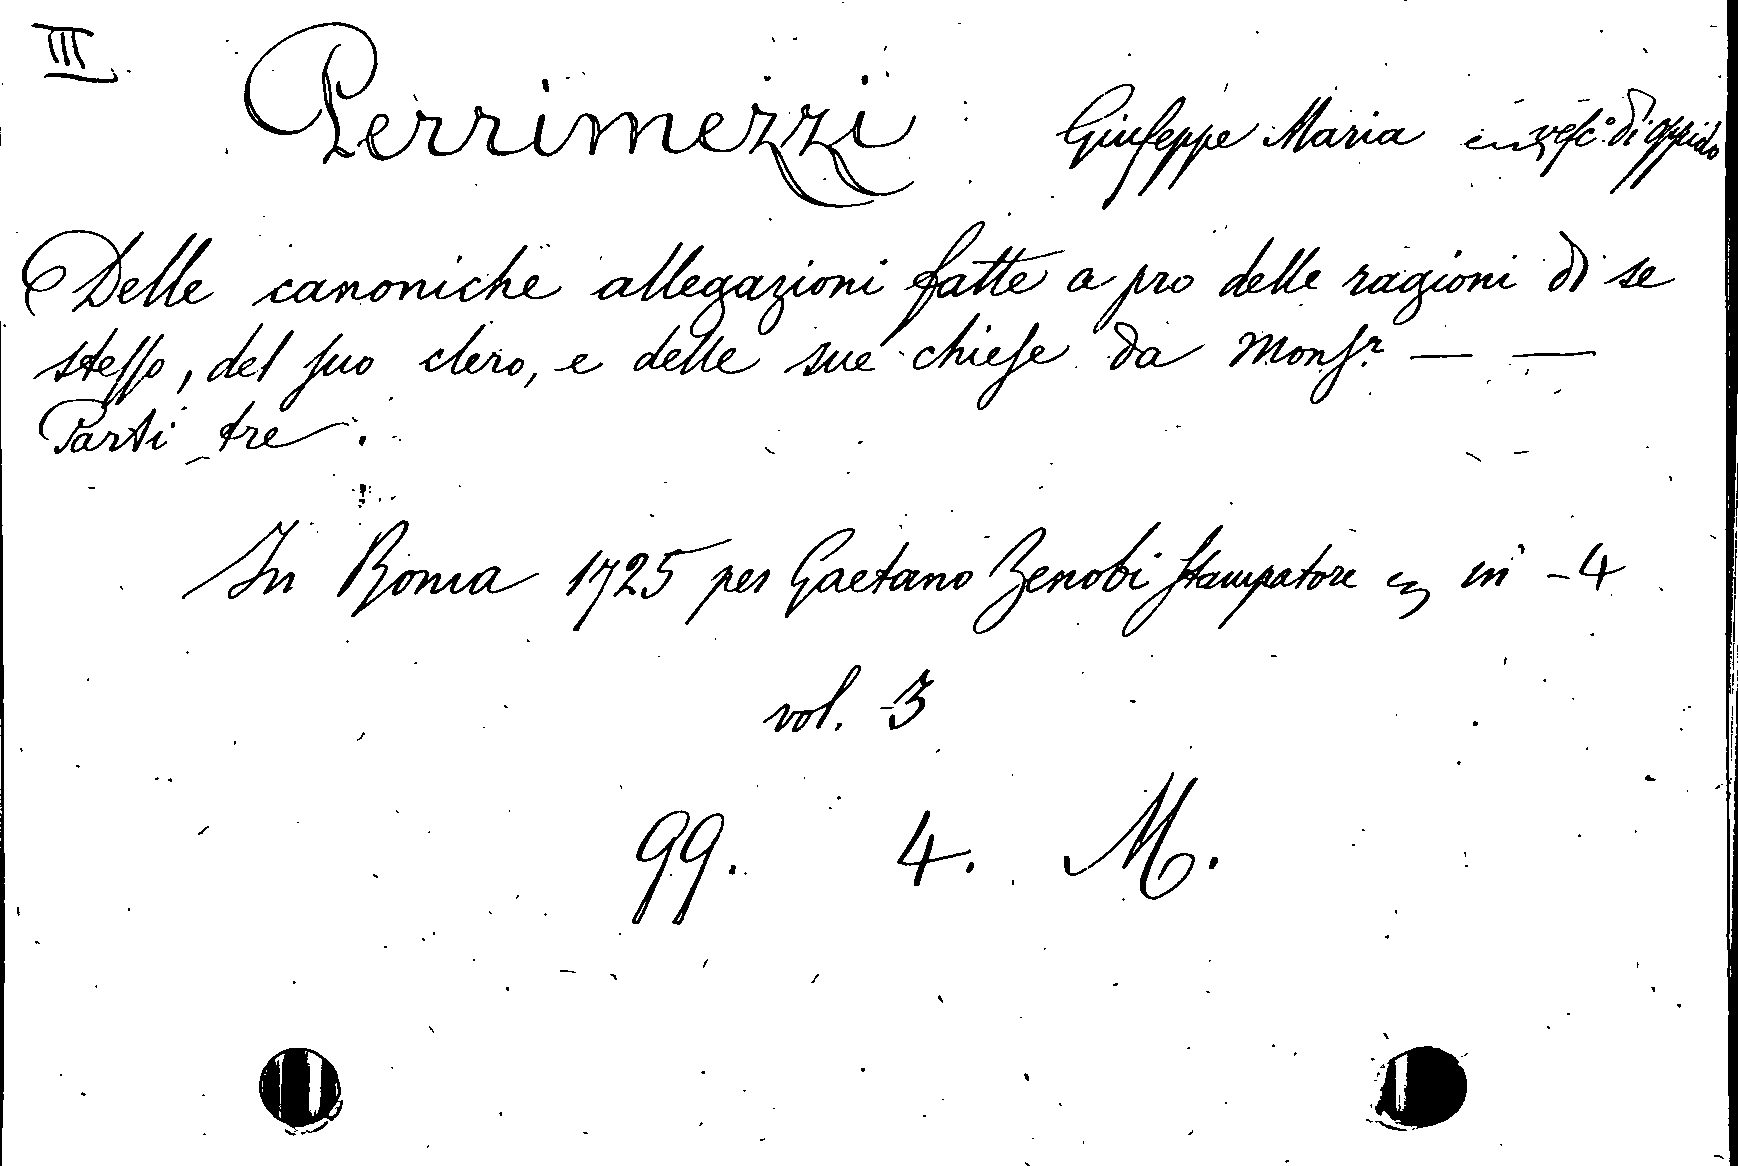 III
Perrimezzi Giuseppe Maria vesc.º di Oppido
Delle canoniche allegazioni fatte a pro delle ragioni di se
stesso, del suo clero, e delle sue chiese da Monsr. — —
Parti tre.
In Roma 1725 per Gaetano Zenobi Stampatore in - 4
vol. 3
99. 4. M.